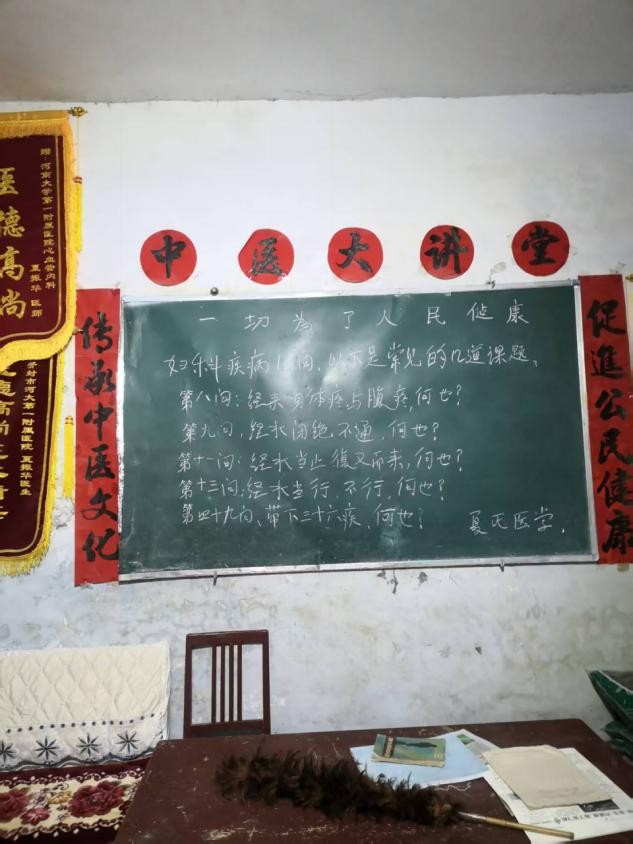 中医大讲堂
一切为了人民健康
妇科疾病几问,以下是常见的几道课题。
第八问:经来身体疼与腹疼,何也?
第九问,经水闭绝,不通,何也?
第十一问:经水当止復又而来,何也?
第十三问:经水当行,不行,何也?
第四十九问、带下三十六疾,何也?
夏氏医学.
传承中医文化
促進公民健康
医德高尚
赠:河南大学第一附属医院心血管内科
夏振华 医师
开封市河大第一附属医院 夏振华医生